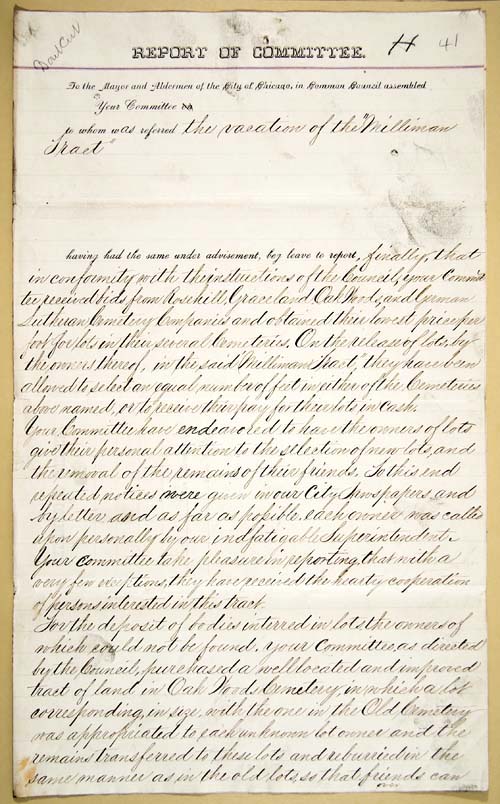 REPORT OF COMMITTEE.
H 41
To the Mayor and Aldermen of the City of Chicago, in Common Council assembled
Your Committee
to whom was referred the vacation of the "Milliman
Tract"
having had the same under advisement, beg leave to report, finally, that
in conformity with the instructions of the Council, your Commit
tee received bids from Rosehill, Graceland, Oak Woods, and German
Lutheran Cemetery Companies and obtained their lowest price per
foot for lots in their several Cemeteries. On the release of lots by
the owners thereof, in the said Milliman Tract, they have been
allowed to select an equal number of feet in either of the Cemeteries
above named, or to receive their pay for these lots in cash.
Your Committee have endeavored to have the owners of lots
give their personal attention to the selection of new lots, and
the removal of the remains of their friends. To this end
repeated notices were given in our City Newspapers, and
by letter and as far as possible each owner was called
upon personally by our indfatigable Superintendent.
Your Committee take pleasure in reporting, that with a
very few exceptions, they have received the hearty cooperation
of persons interested in this tract.
For the deposit of bodies interred in lots, the owners of
which could not be found, your Committee, as directed
by the Council, purchased a well located and improved
tract of land in Oak Woods Cemetery, in which a lot
corresponding, in size, with the one in the Old Cemetery
was appropriated to each unknown lot owner and the
remains transferred to these lots and reburried in the
same manner as in the old lots, so that friends can